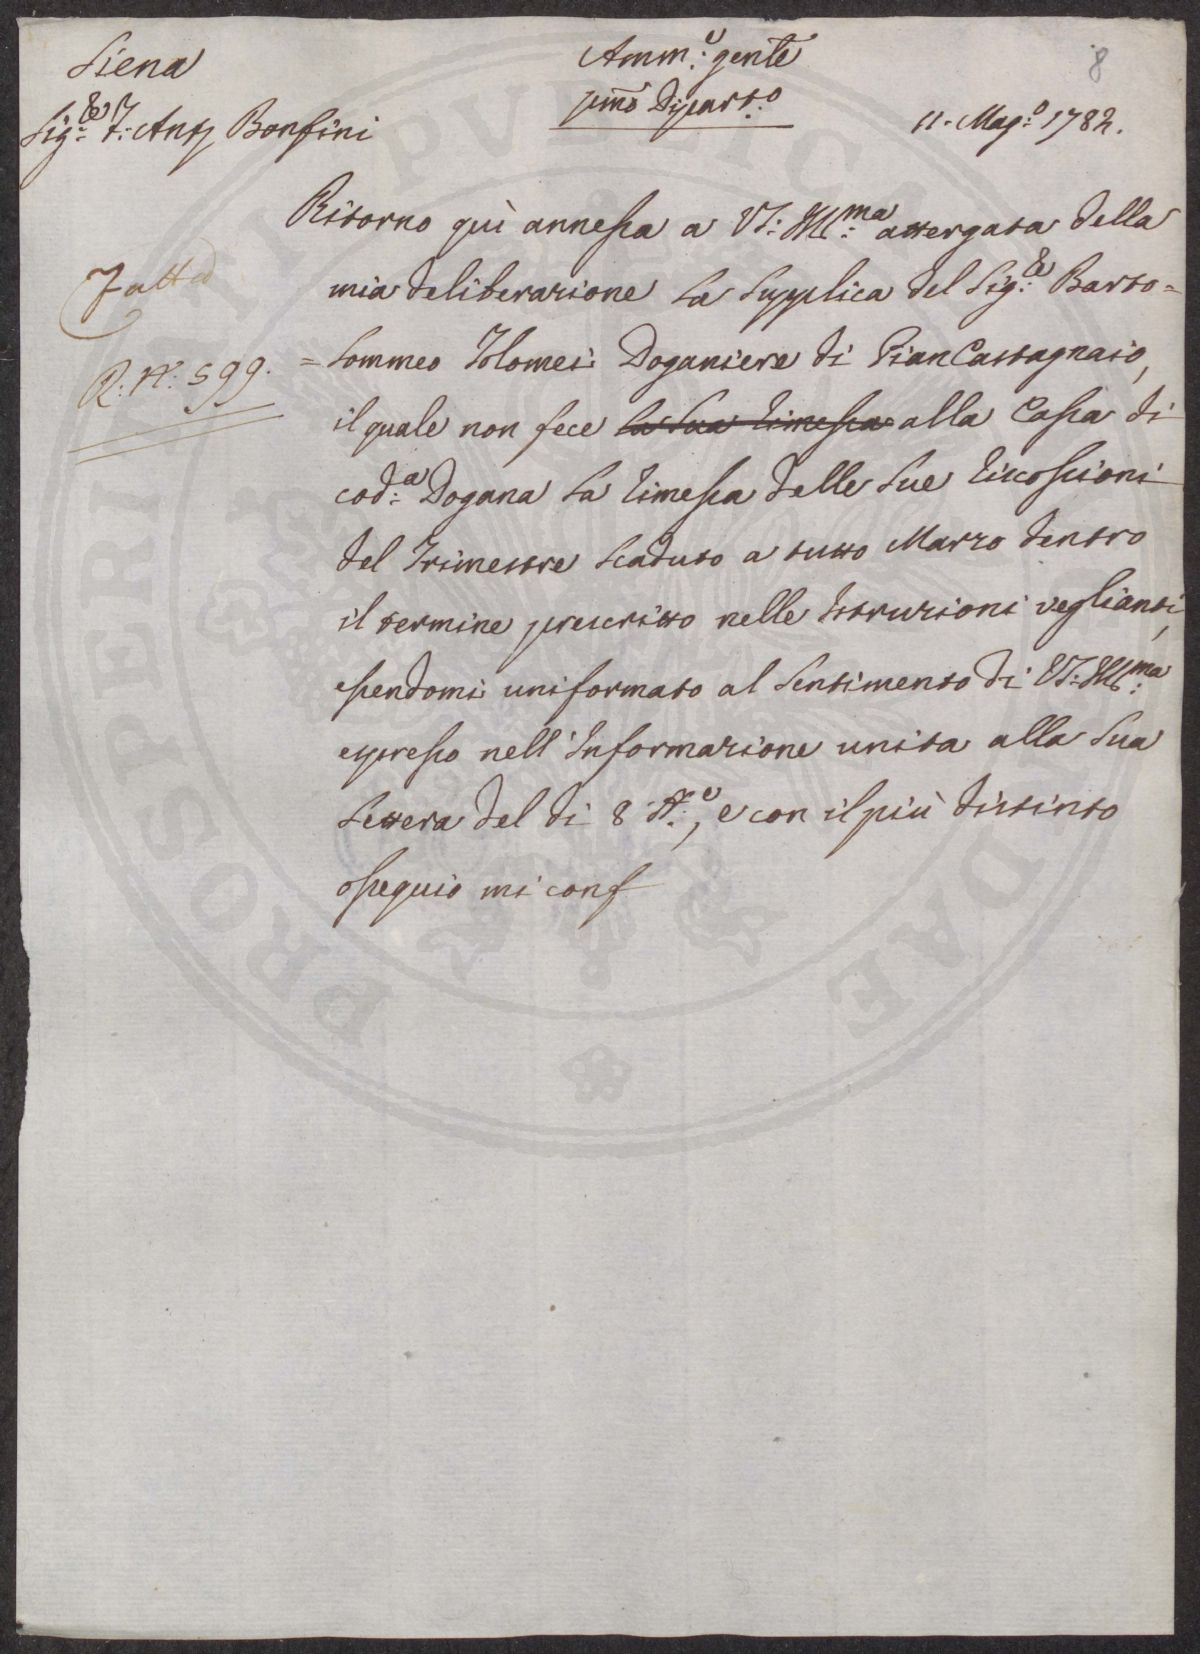 Siena
Amm.e gente
8
pmo Diparto.
Sig.re F. Ant. Bonfini
11. Mag.o 1782.
Ritorno quì annessa a VS: Ill:ma attergata della
mia deliberazione la supplica del Sig:re Barto=
Fatto
=lommeo Tolomei Doganiere di Pian Castagnaio,
R: N: 599.
il quale non fece la sua rimessa alla Cassa di
cod:a Dogana la rimessa delle sue riscossioni
del Trimestre scaduto a tutto Marzo dentro
il termine prescritto nelle Istruzioni veglianti,
essendomi uniformato al sentimento di VS: Ill:ma
espresso nell'Informazione unita alla sua
Lettera del dì 8 St:e, e con il più distinto
ossequio mi conf
PROSPERITATI PUBLICAE